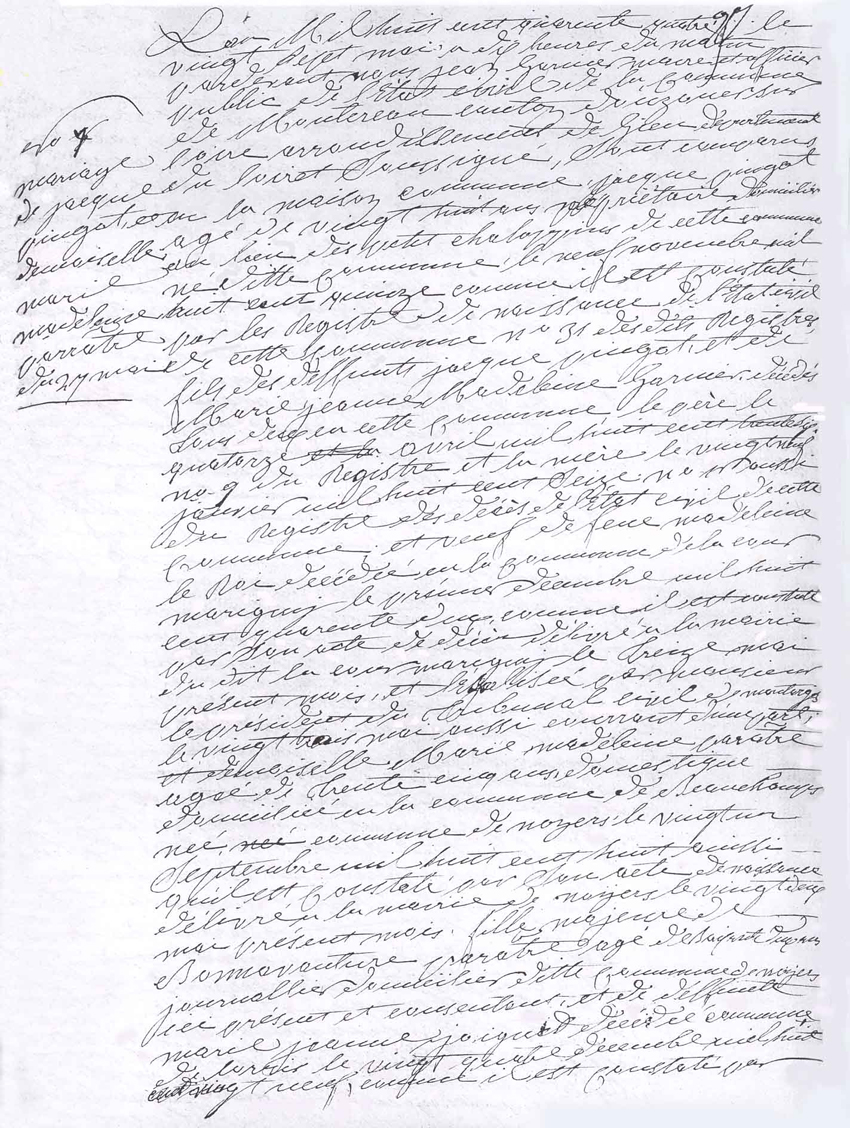 L'an Mil huit cent quarante quatre, le
vingt sept mai a dix heures du matin
pardevant nous jean Garnier maire et officier
public de l'état civil de la commune
de Montereau canton d'ouzouer sur
loire arrondissement de Gien département
du Loiret Soussigné, Sont comparus
en la maison commune jacque pingot
agé de vingt huit ans propriétaire domicilier
au lieu des petit chaloppins de cette commune
né ditte commune le neuf novembre mil
huit cent quinze comme il est constaté
par les Registre de naissance de l'état civil
de cette commune no 31 des dits Registres
fils des deffunts jacque pingot, et de
Marie jeanne Madeleine Garnier décédés
tous deux en cette commune le père le
quatorze avril mil huit cent
no 9 du Registre et la mère le vingt neuf
janvier mil huit cent Seize no aussi
du Registre des décès de l'état civil de cette
commune; et veuf de feue madeleine
le Roi décédée en la commune de la cour
marigny le premier décembre mil huit
cent quarante deux, comme il est constaté
par son acte de décès délivré a la mairie
du dit la cour marigny le Treize mai
présent mois, et légalisée par monsieur
le président du Tribunal civil de montargis
le vingt trois mai aussi courrant d'une part;
et demoiselle Marie madeleine parratre
agée de trente cinq ans, domestique
domiciliée en la commune de Beauchamps
née, commune de noyers le vingt un
Septembre mil huit cent huit ainsi
qu'il est constaté par son acte de naissance
délivré a la mairie de noyers le vingt deux
mai présent mois. fille majeure de
Bonnavanture parratre agé de
journallier domicilier ditte commune de noyers
ici présent et consentant, et de deffunte
marie jeanne décédée commune
de lorris le vingt quatre décembre mil huit
cent vingt neuf, comme il est constaté par
no 7
mariage
de jacque
pingot, et
demoiselle
marie
madeleine
parratre
du 27 mai